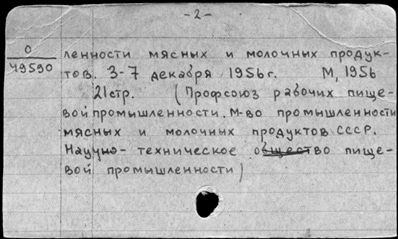 -2-
0
49590
ленности мясных и молочных продук-
тов. 3-7 декабря 1956 г. М, 1956
21стр. (Профсоюз рабочих пище-
вой промышленности. М-во промышленности
мясных и молочных продуктов СССР.
Научно-техническое общество пище-
вой промышленности)